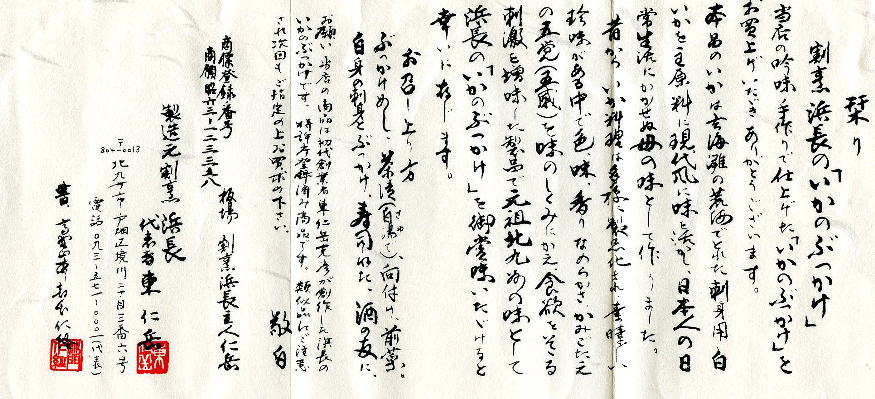 栞り
割烹 浜長の「いかのぶっかけ」
当店の吟味、手作りで仕上げた「いかのぶっかけ」と
お買上げいただきありがとうございます。
本品のいかは玄海灘の荒海でとれた刺身用白
いかを主原料に現代風に味と活かし、日本人の日
常生活にかかせぬ母の味として作りました。
昔からいか料理は多様に製品化され、素晴しい
珍味がある中で色、味、香り、なめらかさ、かみごたえ
の五覚(五感)を味のしとみにかえ食欲をそそる
刺激を美味した製品で元祖北九州の味として
浜長の「いかのぶっかけ」を御賞味いただけると
幸いに存じます。
お召し上り方
ぶっかけめし、茶漬(白湯で)、向付け、前菜、
白身の刺身とぶっかけ、寿司ねた、酒の友に、
お願い 当店の商品は初代創業者東仁岳克彦が創作した浜長の
いかのぶっかけです。特許庁登録済み商品です。類似品にご注意
され次回もご指定の上お買求め下さい。
敬白
商標登録番号
商願昭六三-一二三三五八
板場 割烹浜長主人仁岳
製造元 割烹 浜長
代表者 東 仁岳
〒804-0013
北九州市戸畑区境川二丁目三番六号
電話〇九三-五七一-一〇〇〇(代表)